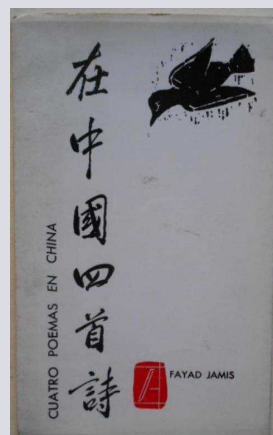 在中國四首詩
CUATRO POEMAS EN CHINA
FAYAD JAMIS